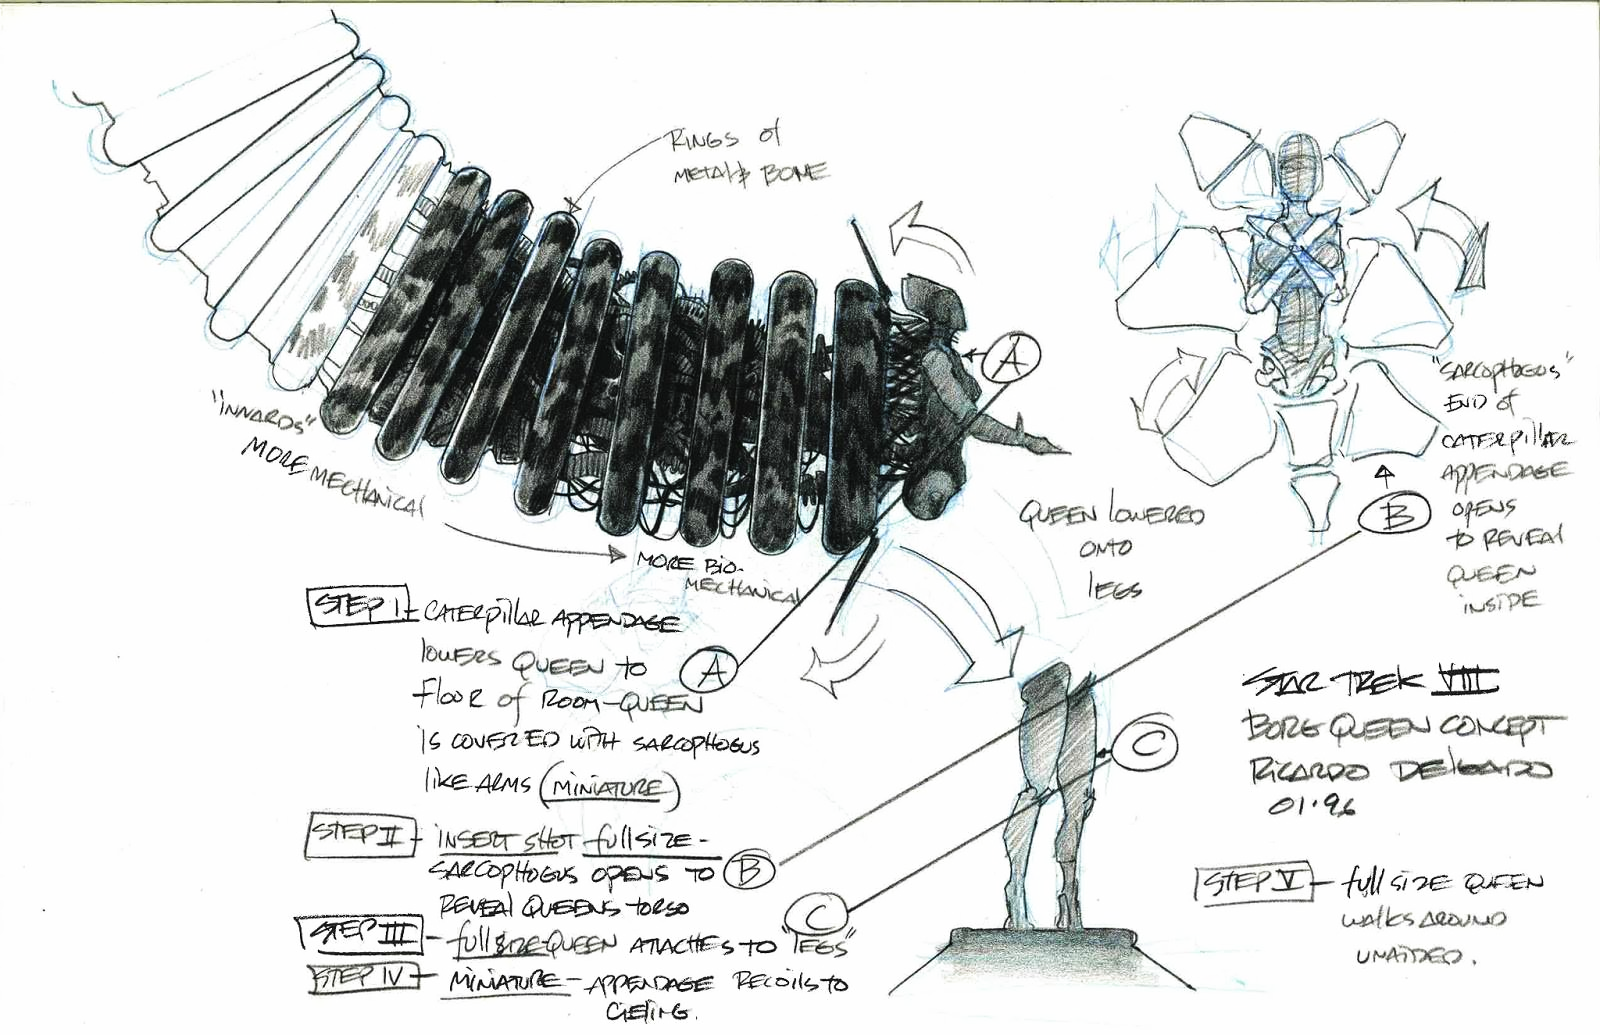 RINGS of
METAL & BONE
A
"INNARDS"
MORE MECHANICAL
MORE BIO-
MECHANICAL
QUEEN LOWERED
ONTO
LEGS
"SARCOPHOGUS"
END of
CATERPILLAR
APPENDAGE
OPENS
TO REVEAL
QUEEN
INSIDE
B
STEP I - CATERPILLAR APPENDAGE
LOWERS QUEEN TO A
FLOOR of ROOM - QUEEN
IS COVERED WITH SARCOPHOGUS
LIKE ARMS (MINIATURE)
STEP II - INSERT SHOT FULLSIZE -
SARCOPHOGUS OPENS TO B
REVEAL QUEENS TORSO
STEP III - FULLSIZE QUEEN ATTACHES TO "LEGS" C
STEP IV - MINIATURE - APPENDAGE RECOILS TO
CIELING.
C
STAR TREK VIII
BORG QUEEN CONCEPT
RICARDO DELGADO
01.96
STEP V - FULL SIZE QUEEN
WALKS AROUND
UNAIDED.